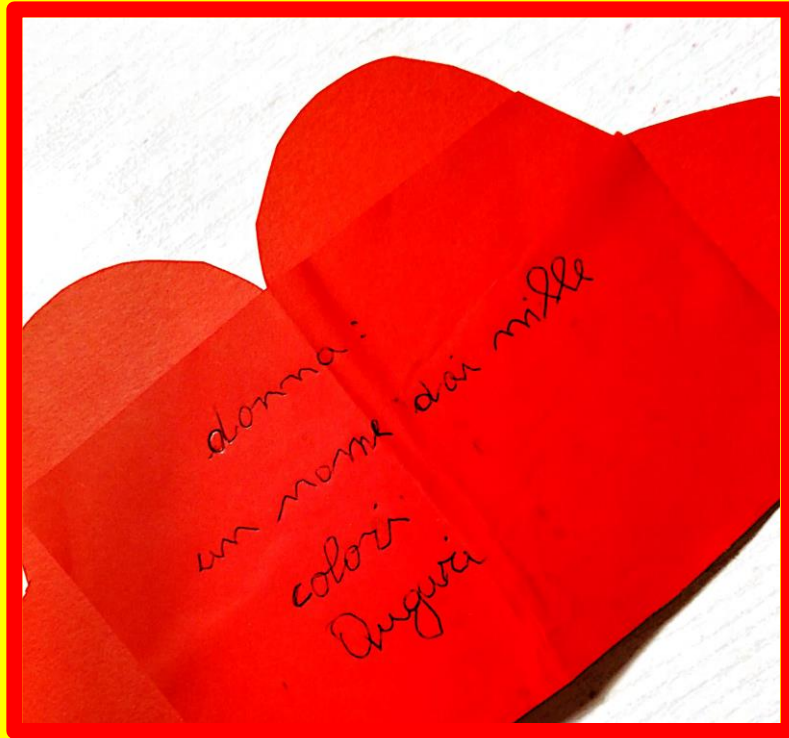 donna:
un nome dai mille
colori
Auguri